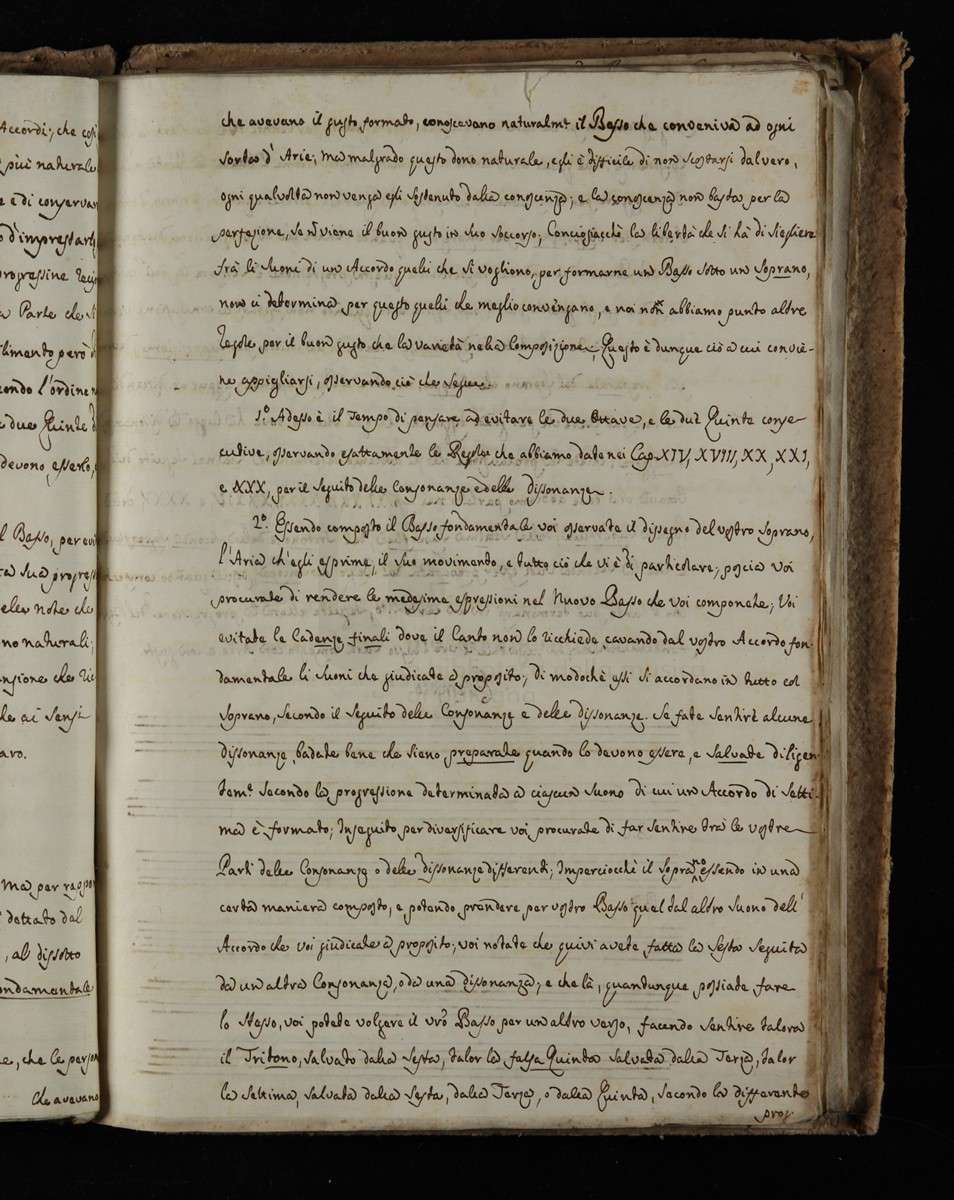 Accordi; che così
più naturale
e è di conservar
d'imprestarli
progressine Reci
a Parte che si
limento però d
condo l'ordine n
e due Quinte d
devono esserlo,
l Basso, per evi
ta sua progress
elle note che
no naturali;
ensione che Ric
le ai sensi
aro.
ma per rappor
dettato dal
, al dissotto
ondamentale
e, che le person
Che avevano
che avevano il gusto formato, conoscevano naturalmᵗᵉ il Basso che conveniva ad ogni
sorta d'Arie; ma malgrado questo dono naturale, egli è difficile di non scostarsi dal vero,
ogni qualvolta non venga egli sostenuto dalla conoscenza; e la conoscenza non basta per la
perfezione, se nō viene il buon gusto in suo soccorso; Conciosiacchè la libertà che si hà di sciegliere
frà li suoni di un Accordo quelli che si vogliono, per formarne un Basso sotto un Soprano,
non ci determina per questo quelli che meglio convengano, e noi non abbiamo punto altre
Regole per il buon gusto che la varietà nella Composizione; Questo è dunque ciò a cui convie-
ne appigliarsi, osservando ciò che segue.
1.º Adesso è il tempo di pensare ad evitare le due Ottave, e le due Quinte conse-
cutive, osservando esattamente le Regole che abbiamo date nei Cap. XIV, XVIII, XX, XXI,
e XXX, per il seguito delle Consonanze e delle dissonanze.
2.º Essendo composto il Basso fondamentale voi osservate il dissegno del vostro soprano,
l'Aria ch'egli esprime, il suo movimento, e tutto ciò che vi è di particolare; poscia voi
procurate di rendere le medesime espressioni nel Nuovo Basso che voi componete; Voi
evitate le Cadenze finali dove il Canto non lo richiede cavando dal vostro Accordo fon-
damentale li suoni che giudicate a proposito; di modochè essi si accordano in tutto col
soprano, secondo il seguito delle Consonanze e delle dissonanze. Se fate sentire alcune
dissonanze badate bene che sieno preparate quando lo devono essere, e salvate diligen-
temᵗᵉ secondo la progressione determinata a ciascun suono di cui un Accordo di Setti-
ma è formato; Inseguito per diversificare voi procurate di far sentire trà le vostre
Parti delle Consonanze o delle dissonanze differenti; Imperciocchè il soprano essendo in una
certa maniera composto, e potendo prendere per vostro Basso qual dal altro suono dell'
Accordo che voi giudicate a proposito; voi notate che quivi avete fatta la Sesta seguita
da un altra Consonanza, o da una dissonanza; e che là, quandunque possiate fare
lo stesso, voi potete volgere il vrō Basso per un altro verso, facendo sentire talora
il Tritono, salvato dalla Sesta, talor la falsa Quinta salvata dalla Terza, talor
la Settima, salvata dalla Sesta, dalla Terza, o dalla Quinta, secondo la differente
prog.